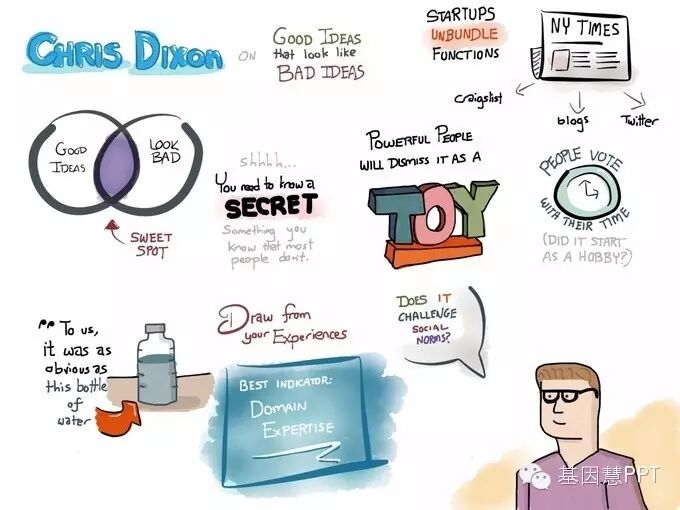 CHRIS DIXON
ON
GOOD IDEAS
that look like
BAD IDEAS
STARTUPS
UNBUNDLE
FUNCTIONS
NY TIMES
craigslist
blogs
Twitter
GOOD
IDEAS
LOOK
BAD
SWEET
SPOT
shhhh...
You need to know a
SECRET
Something you
know that most
people don't.
POWERFUL PEOPLE
WILL DISMISS IT AS A
TOY
PEOPLE VOTE
WITH THEIR TIME
(DID IT START
AS A HOBBY?)
"To us,
it was as
obvious as
this bottle
of
water
Draw from
your Experiences
BEST INDICATOR:
DOMAIN
EXPERTISE
DOES IT
CHALLENGE
SOCIAL
NORMS?
基因慧PPT